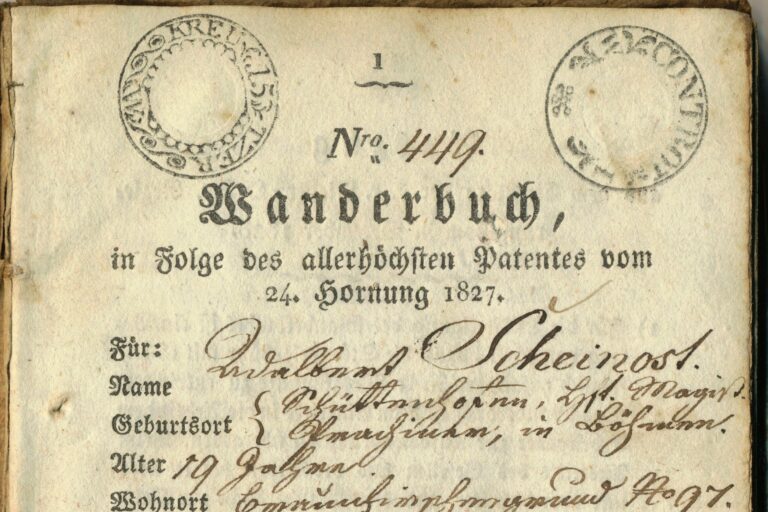 KREUZ. 15 TZER
CONTROL
1
Nro. 449.
Wanderbuch,
in Folge des allerhöchsten Patentes vom
24. Hornung 1827.
Für: Adalbert Scheinost.
Name Schüttenhofen, Hft. Magist.
Geburtsort Prachiner, in Böhmen.
Alter 19 Jahre.
Wohnort Braunhirschengrund No 97.